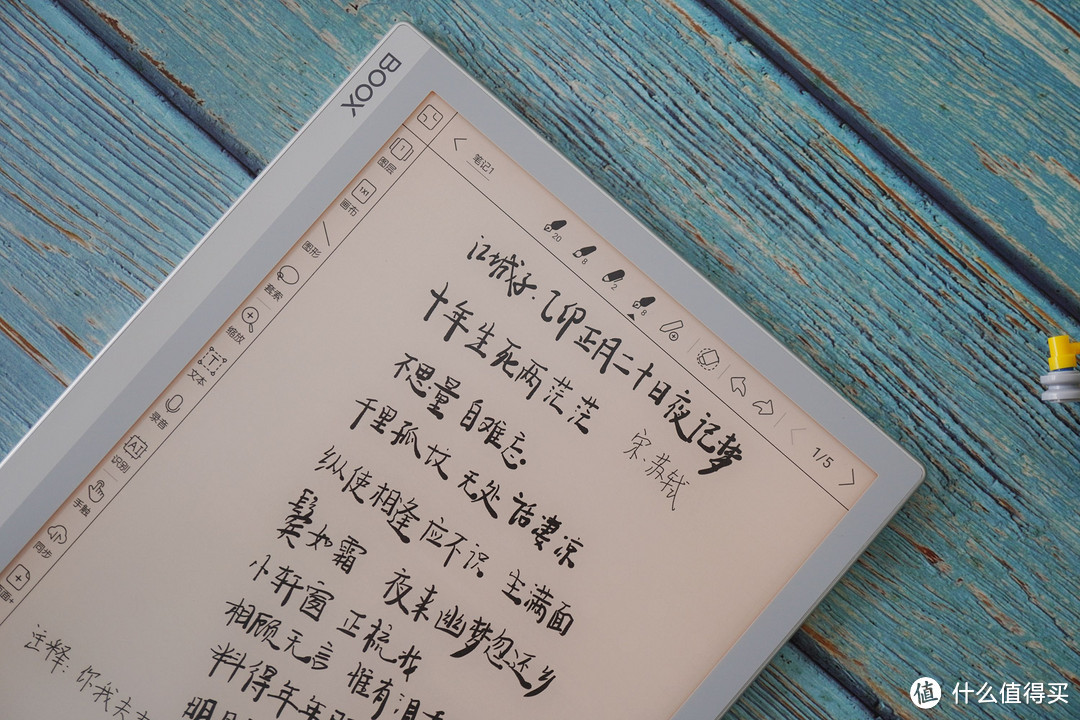 BOOX
笔记1
20
8
2
8
1/5
1
图层
1X1
画布
图形
套索
缩放
T
文本
录音
AI
识别
手触
同步
页面+
江城子.乙卯正月二十日夜记梦
宋.苏轼
十年生死两茫茫
不思量 自难忘
千里孤坟 无处话凄凉
纵使相逢 应不识 尘满面
鬓如霜 夜来幽梦忽还乡
小轩窗 正梳妆
相顾无言 惟有泪
料得年年
明月
注释: 你我夫
值 什么值得买